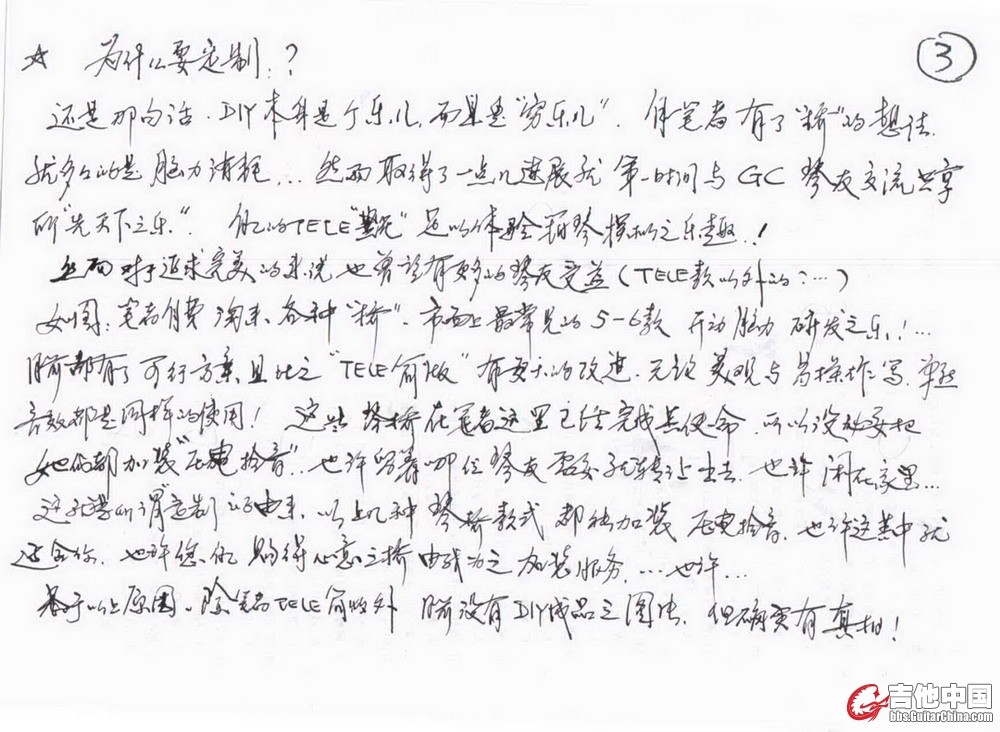 ③
☆ 为什么要定制:?
还是那句话.DIY本身是个乐儿,而且是"穷乐儿".自笔者有了"桥"的想法.
就多的是脑力消耗...然而取得了一点儿进展就第一时间与GC琴友交流共享
所"先天下之乐".他的TELE 足以体验 琴模拟之乐趣.!
然而对于追求完美的来说也曾设有更多的琴友受益(TELE款以外的:...)
如图:笔者自费淘来各种"桥".市面上最常见的5-6款 开动脑力 研发之乐!...
目前都有了可行方案且比之"TELE简版"有更大的改进.无论美观与易操作.当然
音效都是同样的使用! 这些琴桥在笔者这里已经完成其使命.所以没必要把
她们都加装"压电拾音".也许留着哪位琴友 转让出去.也许闲在家里...
这就是所谓"定制"的由来.以上几种琴桥款式都能加装压电拾音.也许这其中就
适合你.也许您能购得心意之桥由我为之加装服务....也许...
基于以上原因.除笔者TELE简版外 目前没有DIY成品之图片.但确实有真相!
吉他中国
bbs.GuitarChina.com